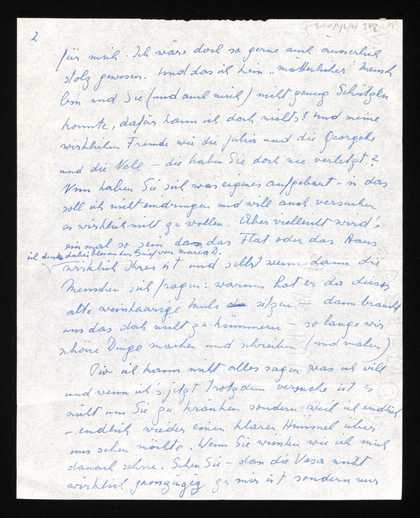 2
für mich. Ich wäre doch so gerne auch äusserlich
stolz gewesen. Und das ich kein "mütterlicher" Mensch
bin und Sie (und auch mich) nicht genug Schützen
konnte, dafür kann ich doch nichts! Und meine
wirklichen Freunde wie die Julia und die Georgette
und die Nele – die haben Sie doch nie verletzt?
Nun haben Sie sich was eigenes aufgebaut – in das
soll ich nicht eindringen und will auch versuchen
es wirklich nicht zu wollen. Aber vielleicht wird's
einmal so sein dass das Flat oder das Haus
ich denke dabei an den Brief von
wirklich Ihres ist und selbst wenn dann die
Menschen sich fragen: warum hat er da diese
alte weisshaarige sitzen – dann braucht
uns das doch nicht zu kümmern – so lange wir
schöne Dinge machen und schreiben (und malen)
ich kann nicht alles sagen was ich will
und wenn ich's jetzt trotzdem versuche ist es
nicht um Sie zu kränken sondern weil ich endlich
– endlich wieder einen klaren Himmel über
uns sehen möchte. Wenn Sie wüssten wie ich mich
danach sehne. Sehen Sie – dass die Vesa nicht
wirklich grosszügig zu mir ist sondern nur